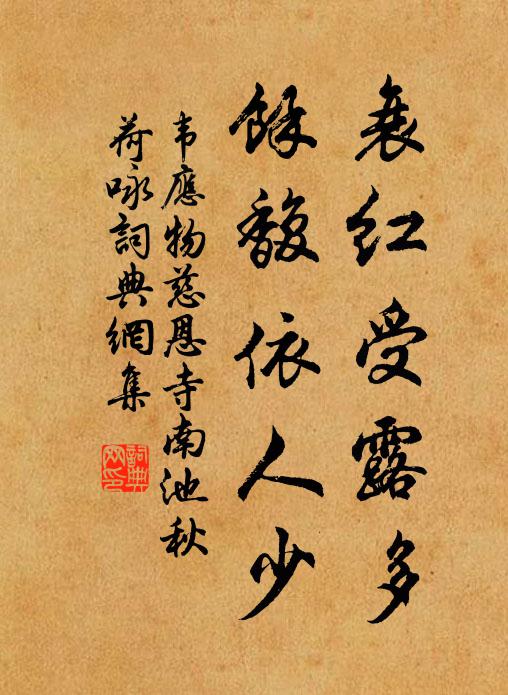 衰紅受露多
餘馥依人少
韦應物慈恩寺南池秋
荷咏詞典網集
詞典
网印